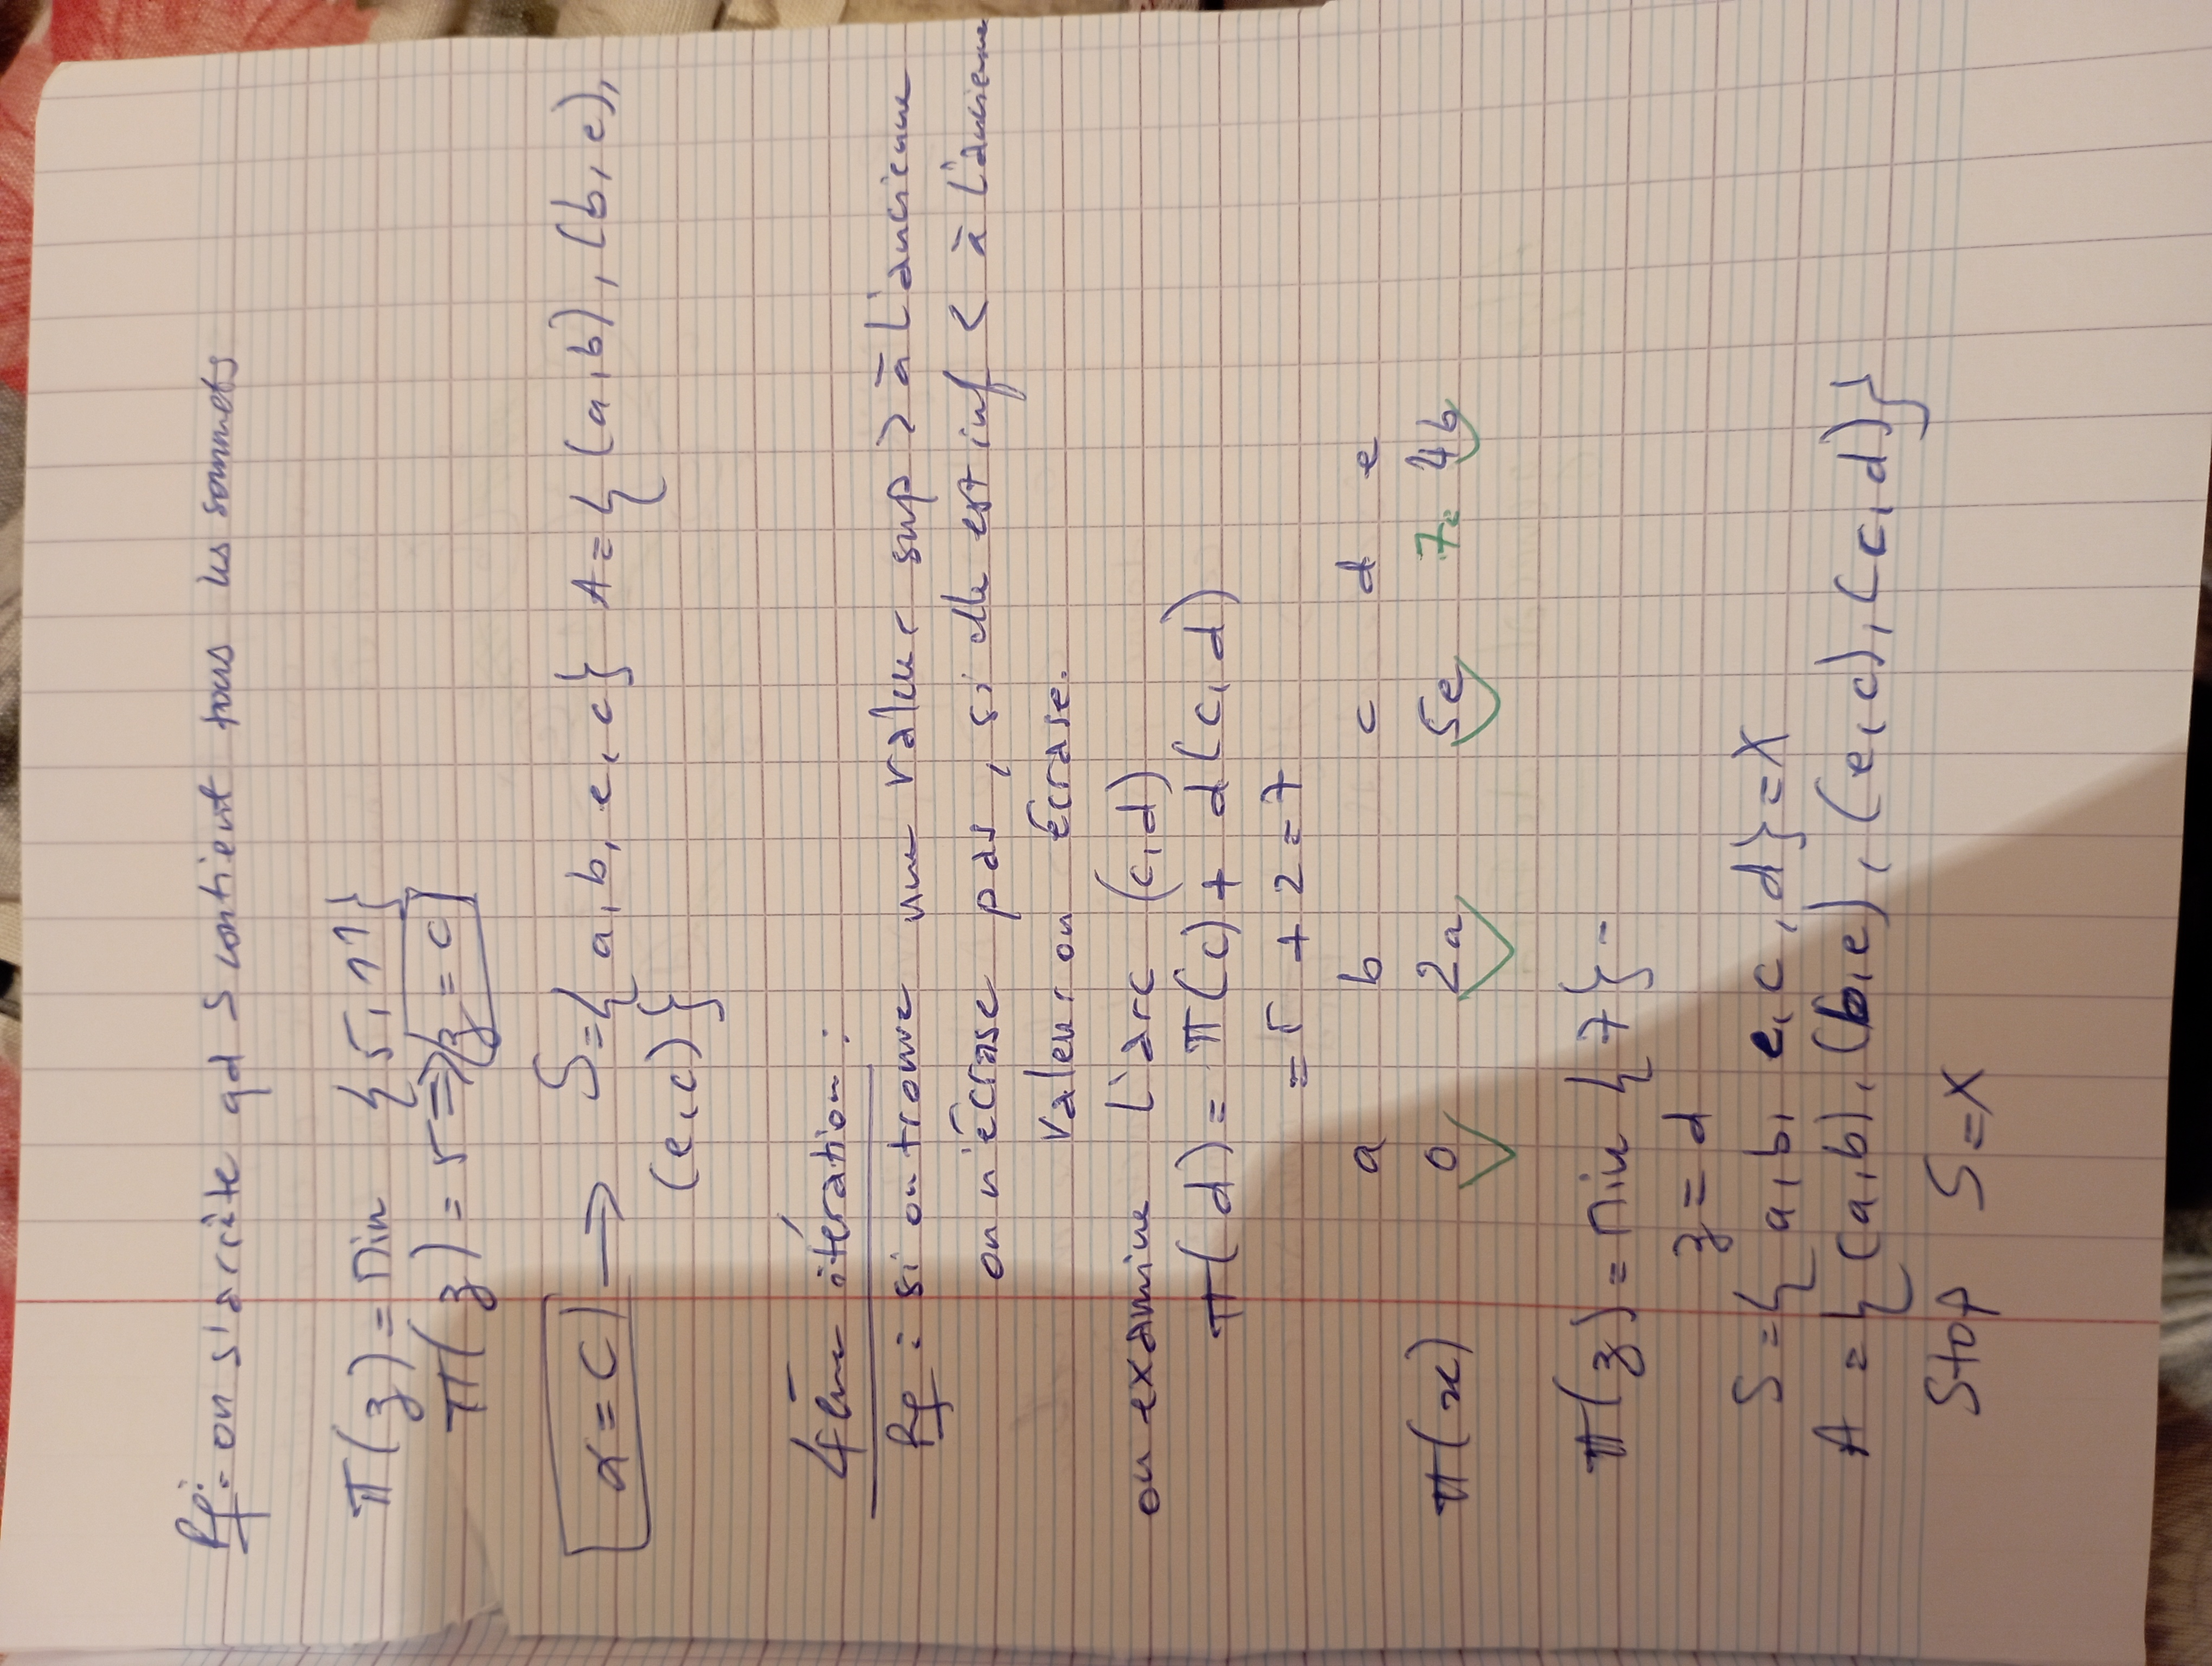 Rq: on s'arrête qd S contient tous les sommets
π(z) = Min { 5, 11 }
π(z) = 5 ⇒ z = c
x = c → S = { a, b, e, c } A = { (a, b), (b, e),
(e, c) }
4ème itération :
Rq : si on trouve une valeur sup > à l'ancienne
on n'écrase pas, si elle est inf < à l'ancienne
valeur on écrase.
on examine l'arc (c, d)
π(d) = π(c) + d(c, d)
= 5 + 2 = 7
a b c d e
π(x) 0 2a 5e 7c 4b
π(z) = Min { 7 } =
z = d
S = { a, b, e, c, d } = X
A = { (a, b), (b, e), (e, c), (c, d) }
Stop S = X